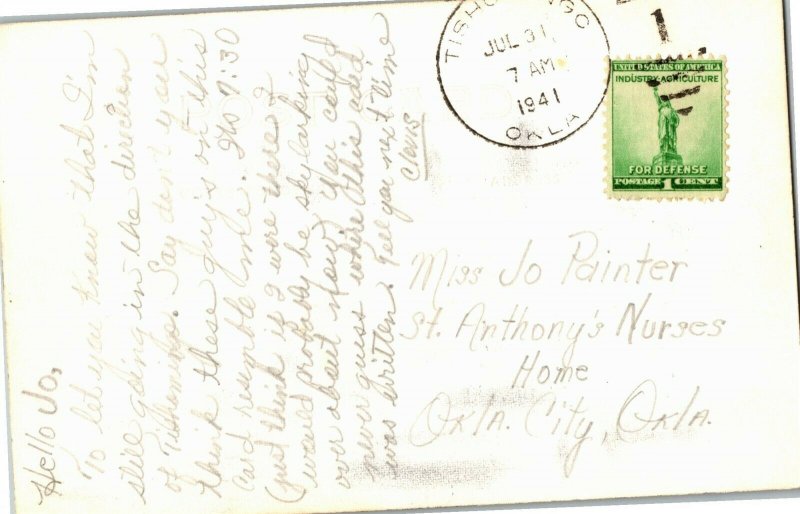 Hello Jo,
To let you know that I'm
still going in the direction
of Tishomingo. Say don't you
think these guy's on this
card resemble me. Its 9:30
(just think if I were there I
would probably be skylarking
over about now) You could
never guess where this card
was written. Tell you next time
TISHOMINGO
JUL 31
7 AM
1941
OKLA
1
UNITED STATES OF AMERICA
INDUSTRY-AGRICULTURE
FOR DEFENSE
POSTAGE 1 CENT
Miss Jo Painter
St. Anthony's Nurses
Home
Okla. City, Okla.